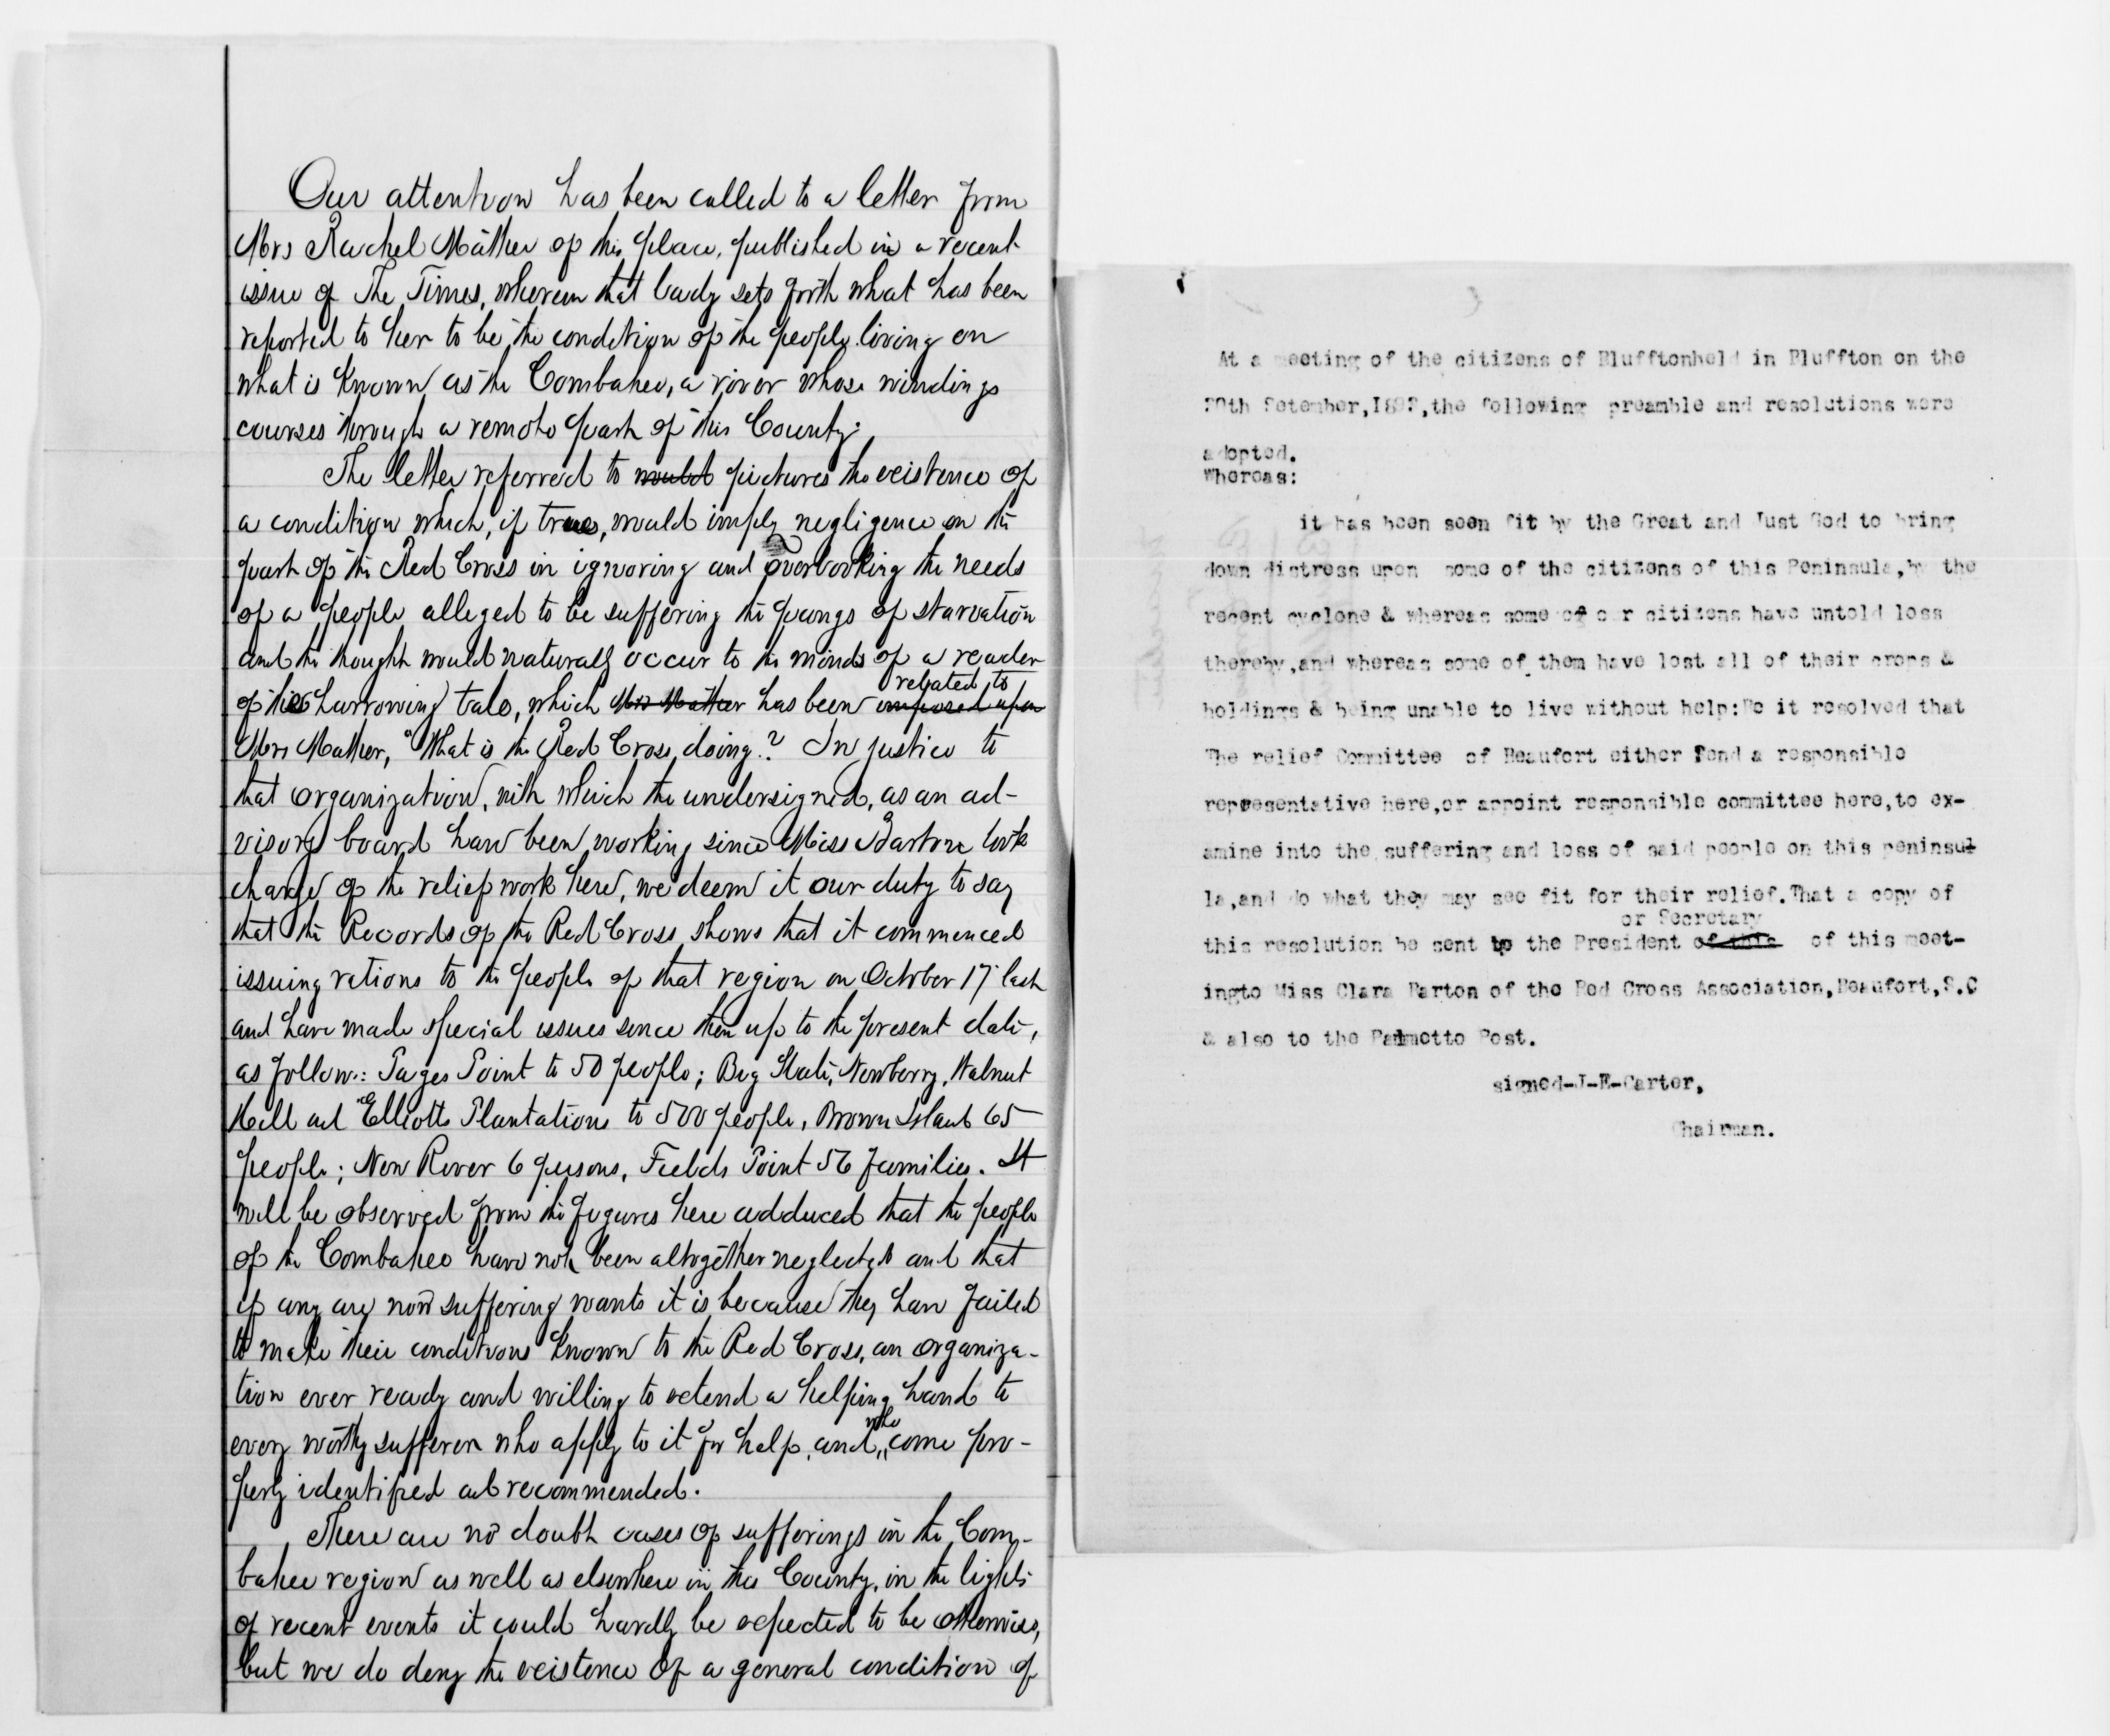 Our attention has been called to a letter from
Mrs Rachel Mather of this place, published in a recent
issue of The Times, wherein that lady sets forth what has been
reported to her to be the condition of the people living on
what is known as the Combahee, a river whose windings
courses through a remote part of this County.
The letter referred to would pictures the existence of
a condition which, if true, would imply negligence on the
part of the Red Cross in ignoring and overlooking the needs
of a people alleged to be suffering the pangs of starvation
and the thought would naturally occur to the minds of a reader
related to
of this harrowing tale, which Mrs Mather has been imposed upon
Mrs Mather, "What is the Red Cross doing"? In justice to
that organization, with which the undersigned, as an ad-
visory board have been working since Miss Barton took
charge of the relief work here, we deem it our duty to say
that the Records of the Red Cross shows that it commenced
issuing rations to the people of that region on October 17 last
and have made special issues since then up to the present date,
as follow: Pages Point to 50 people; Big State, Newberry, Walnut
Hill and Elliotts Plantations to 500 people, Brown Island 65
people; New River 6 persons, Fields Point 56 families. It
will be observed from the figures here adduced that the people
of the Combahee have not been altogether neglected and that
if any are now suffering wants it is because they have failed
to make their conditions known to the Red Cross, an organiza-
tion ever ready and willing to extend a helping hand to
who
every worthy sufferer who apply to it for help, and come pro-
perly identified and recommended.
There are no doubt cases of sufferings in the Com-
bahee region as well as elsewhere in this County, in the lights
of recent events it could hardly be expected to be otherwise,
but we do deny the existence of a general condition of
At a meeting of the citizens of Blufftonheld in Bluffton on the
20th Setember,I893,the following preamble and resolutions were
adopted.
Whereas:
it has been seen fit by the Great and Just God to bring
down distress upon some of the citizens of this Peninsula,by the
recent cyclone & whereas some of our citizens have untold loss
thereby,and whereas some of them have lost all of their crops &
holdings & being unable to live without help:Be it resolved that
The relief Committee of Beaufort either Send a responsible
representative here,or appoint responsible committee here,to ex-
amine into the suffering and loss of said people on this peninsul
la,and do what they may see fit for their relief.That a copy of
or Secretary
this resolution be sent by the President of this of this meet-
ingto Miss Clara Barton of the Red Cross Association,Beaufort,S.C
& also to the Palmetto Post.
signed-J-E-Carter,
Chairman.